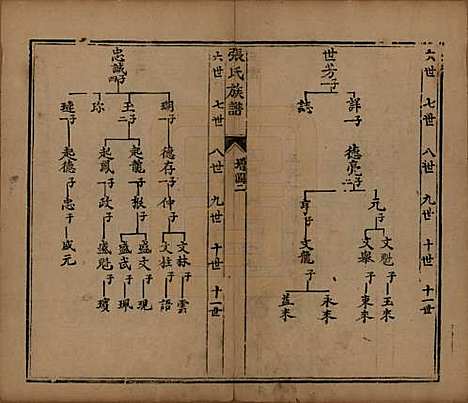 六世 七世 八世 九世 十世 十一世
世芳子
詳子
誌
德亮子
元子
亨子
文魁子
文舉子
文龍子
玉來
東來
永來
益來
張氏族譜
六世 七世 八世 九世 十世 十一世
忠誠子四
瑚子
玉子二
珍
璉子
德存子
起龍子
起鳳子
起德子
仲子
振子
政子
忠子
文林子
文柱子
盛文子
盛武子
盛魁子
成元
雲
語
現
珮
璸